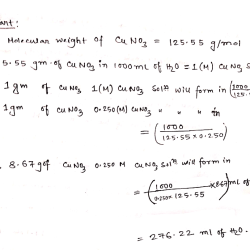 ant:
Molecular weight of CuNO₃ = 125.55 g/mol
5.55 gm of CuNO₃ in 1000 mL of H₂O = 1(M) CuNO₃ S
1 gm of CuNO₃ 1(M) CuNO₃ Solⁿ will form in (1000/125.
1 gm of CuNO₃ 0.250(M) CuNO₃ " " " in
= (1000/125.55 × 0.250)
8.67 g of CuNO₃ 0.250 M CuNO₃ Solⁿ will form in
(1000/0.250 × 125.55 × 8.67) mL of
= 276.22 ml of H₂O.